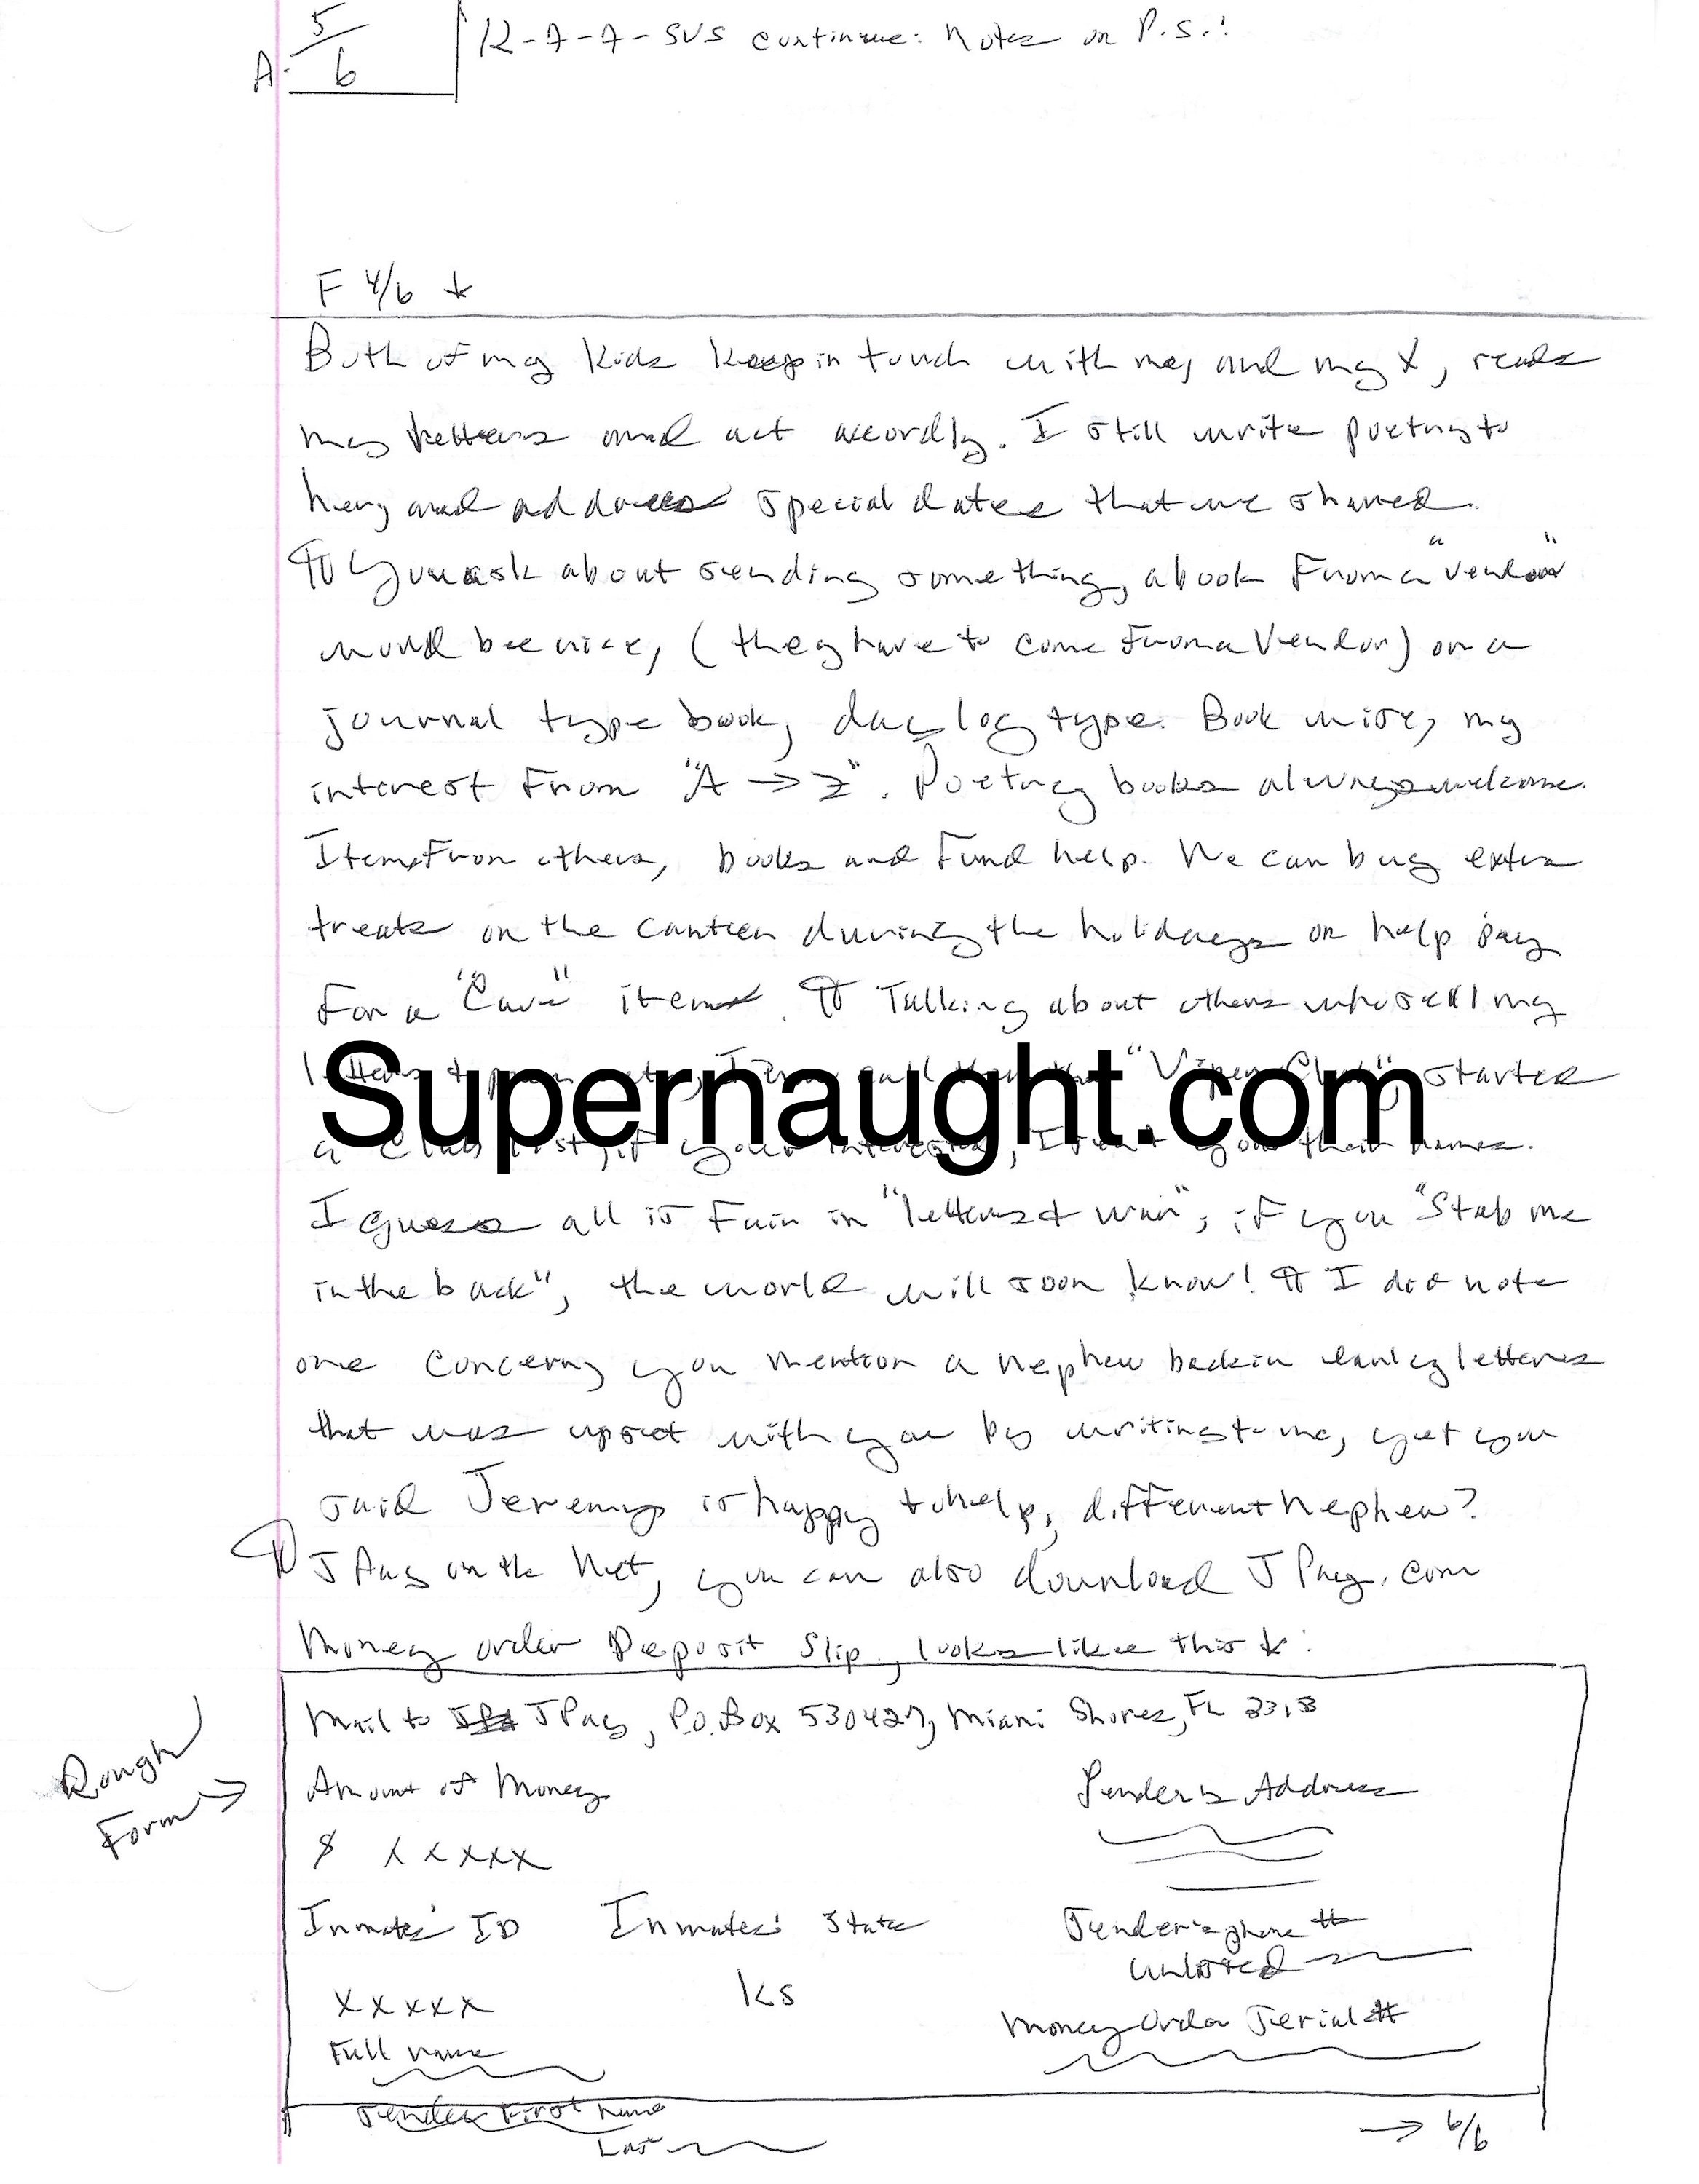 5/6
A.
K-7-7-SVS continue: Notes on P.S.:
F 4/6 ↓
Both of my kids keep in touch with me, and my X, reads
my letters and act accordly. I still write poetry to
her, and address special dates that we shared.
¶ You ask about sending something, a book From a "vendor"
would bee nice, (they have to come From a Vendor) or a
journal type book, day log type. Book wise, my
interest From "A → Z". Poetry books always welcome.
Items From others, books and Fund help. We can buy extra
treats on the canteen during the holidays or help pay
For a "Cave" item. ¶ Talking about others who sell my
letters, "Viper Club", started
a Club list, if your interested, I out you their names.
I guess all is Fair in "letters & war", if you "Stab me
in the back", the world will soon know! ¶ I did note
one concern, you mention a nephew back in early letters
that was upset with you by writing to me, yet you
said Jeremy is happy to help, different nephew?
¶ JPay on the Net, you can also download JPay.com
Money order Deposit Slip, looks like this ↓:
Rough Form →
Mail to JPay, P.O. Box 530427, Miami Shores, FL 3313
Amount of Money
Sender's Address
$ XXXXX
Inmates' ID Inmates: State
Sender's phone #
unlisted
XXXXX
KS
Money Order Serial #
Full name
Sender First name
Last
→ 6/6
Supernaught.com